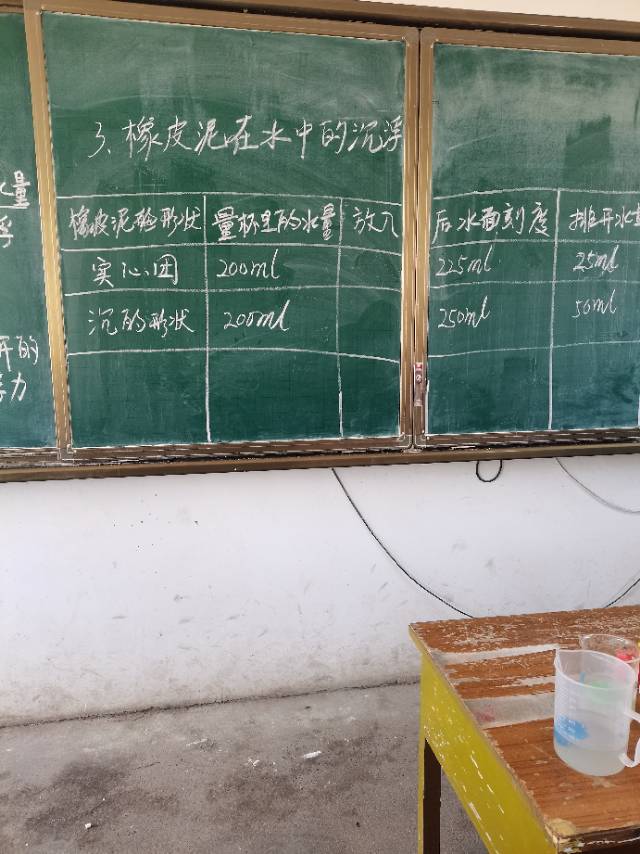 量
3、橡皮泥在水中的沉浮
橡皮泥轮形状 量杯里的水量 放入后水面刻度 排开水量
实心团 200ml 225ml 25ml
沉的形状 200ml 250ml 50ml
开的
力